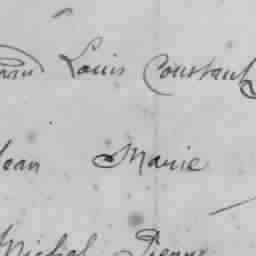 Louis Constant
Jean Marie
Michel Pierre